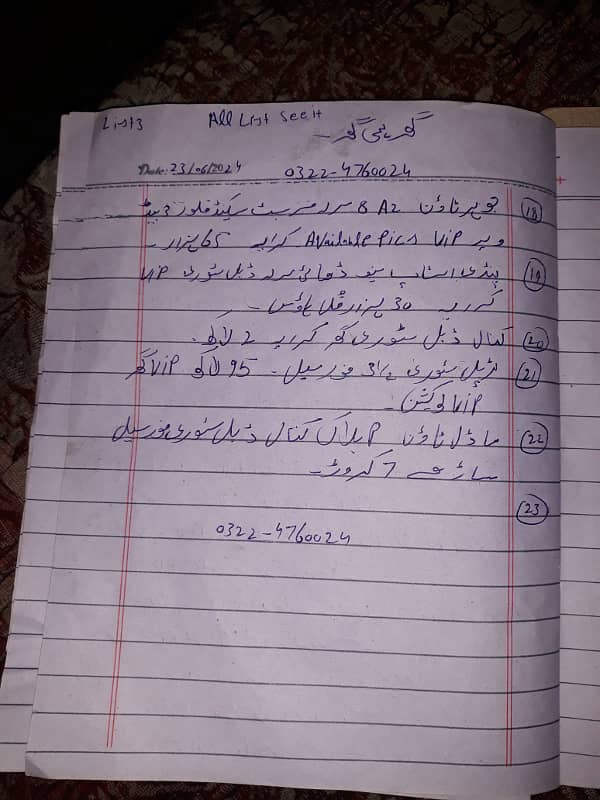 List3 All List see it گھر ہی گھر
Date: 23/06/2024 0322-4760024
(18) جوہر ٹاؤن A2 8 مرلہ فرسٹ سیکنڈ فلور 3 بیڈ
Available Pics ViP کرایہ 65 ہزار۔
(19) پنڈی اسٹاپ ڈھائی مرلہ ڈبل سٹوری ViP
کرایہ 30 ہزار فل ہاؤس۔
(20) کنال ڈبل سٹوری گھر کرایہ 2 لاکھ۔
(21) ٹرپل سٹوری 3½ فور سیل۔ 95 لاکھ ViP گھر
ViP لوکیشن۔
(22) ماڈل ٹاؤن P بلاک کنال ڈبل سٹوری فور سیل
ساڑھے 7 کروڑ۔
(23)
0322-4760024